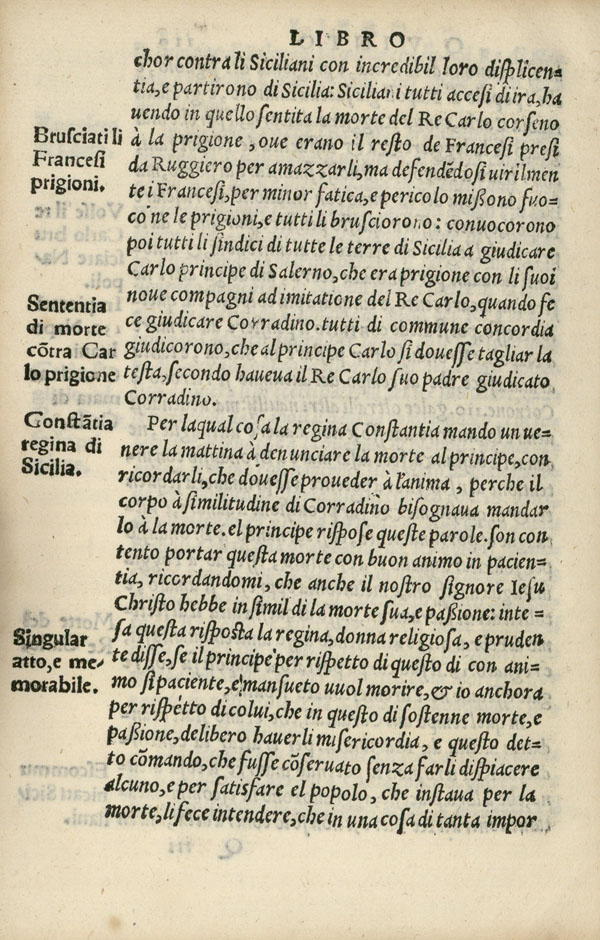 LIBRO
chor contra li Siciliani con incredibil loro displicen=
tia, e partirono di Sicilia: Siciliani tutti accesi di ira, ha
uendo in quello sentita la morte del Re Carlo corseno
Brusciati li
Francesi
prigioni.
à la prigione, oue erano il resto de Francesi presi
da Ruggiero per amazzarli, ma defendẽdosi uirilmen
te i Francesi, per minor fatica, e pericolo mißono fuo=
co ne le prigioni, e tutti li brusciorono: conuocorono
poi tutti li sindici di tutte le terre di Sicilia a giudicare
Carlo principe di Salerno, che era prigione con li suoi
Sententia
di morte
cõtra Car
lo prigione
noue compagni ad imitatione del Re Carlo, quando fe
ce giudicare Corradino. tutti di commune concordia
giudicorono, che al principe Carlo si douesse tagliar la
testa, secondo haueua il Re Carlo suo padre giudicato
Corradino.
Constãtia
regina di
Sicilia.
Per laqual cosa la regina Constantia mando un ue=
nere la mattina à denunciare la morte al principe, con
ricordarli, che douesse proueder à l'anima, perche il
corpo à similitudine di Corradino bisognaua mandar
lo à la morte. el principe rispose queste parole. son con
tento portar questa morte con buon animo in pacien=
tia, ricordandomi, che anche il nostro signore Iesu
Christo hebbe in simil di la morte sua, e paßione: inte=
Singular
atto, e me-
morabile.
sa questa risposta la regina, donna religiosa, e pruden
te disse, se il principe per rispetto di questo di con ani=
mo si paciente, e mansueto uuol morire, & io anchora
per rispetto di colui, che in questo di sostenne morte, e
paßione, delibero hauerli misericordia, e questo det=
to cõmando, che fusse cõseruato senza farli dispiacere
alcuno, e per satisfare el popolo, che instaua per la
morte, li fece intendere, che in una cosa di tanta impor